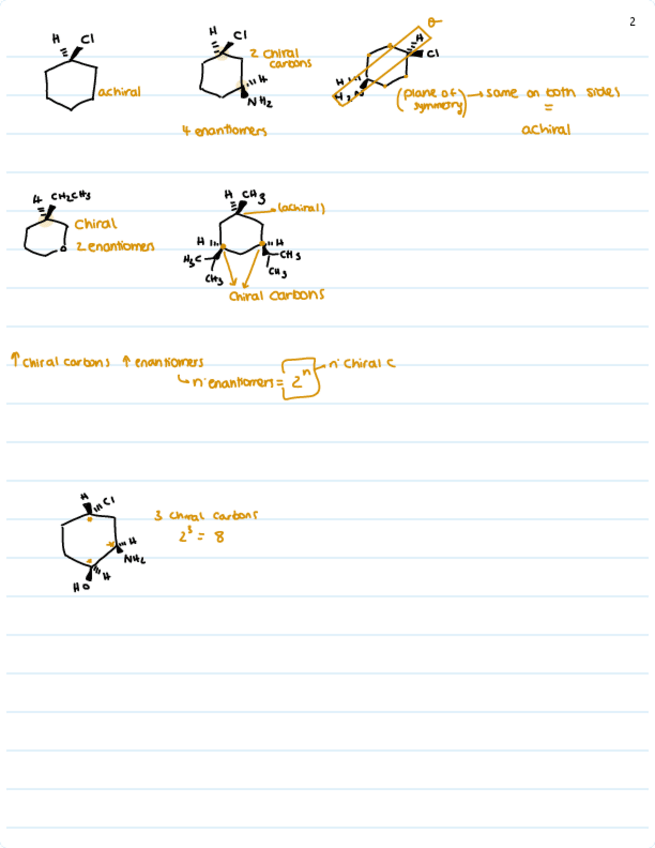 2
H Cl
achiral
H Cl
2 chiral
carbons
H
NH2
4 enantiomers
σ
H
Cl
H
H2N
(plane of symmetry) → same on both sides
=
achiral
4 CH2CH3
chiral
2 enantiomers
O
H CH3
(achiral)
H
H
H3C
CH3
CH3
CH3
chiral carbons
↑ chiral carbons ↑ enantiomers
↳ n° enantiomers = 2^n n° chiral C
H
Cl
3 chiral carbons
2^3 = 8
H
NH2
H
HO